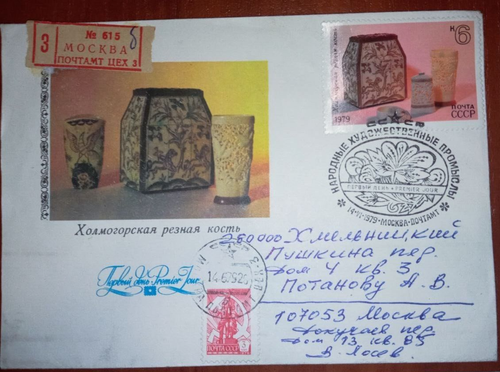 № 615 б
З МОСКВА
ПОЧТАМТ ЦЕХ 3
6 к
1979
ПОЧТА
СССР
СССР
НАРОДНЫЕ ХУДОЖЕСТВЕННЫЕ ПРОМЫСЛЫ
ПЕРВЫЙ ДЕНЬ • PREMIER JOUR
МОСКВА-ПОЧТАМТ
Холмогорская резная кость
Первый день Premier Jour
280000 Хмельницкий
Пушкина пер.
дом 4 кв. 3
Потанову А. В.
107053 Москва
Докучаев пер.
дом 13 кв. 85